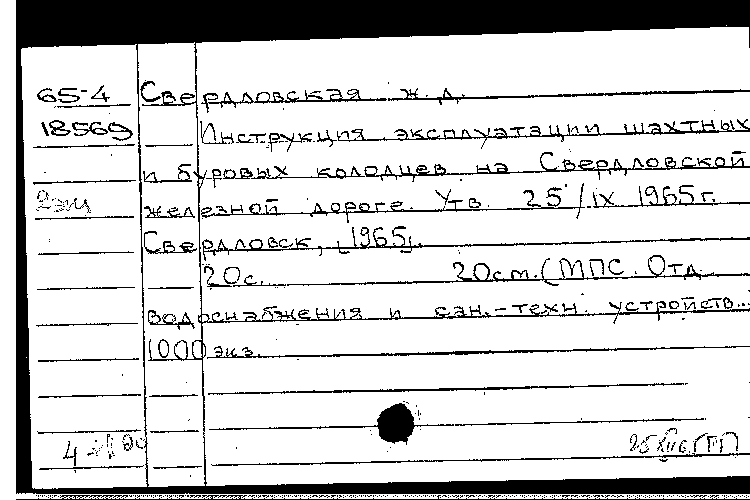 65-4 Свердловская ж.д.
18569 Инструкция эксплуатации шахтных
и буровых колодцев на Свердловской
2экз железной дороге. Утв. 25/IX 1965г.
Свердловск, [1965].
20с. 20см. (МПС. Отд.
водоснабжения и сан.-техн. устройств...
1000 экз.